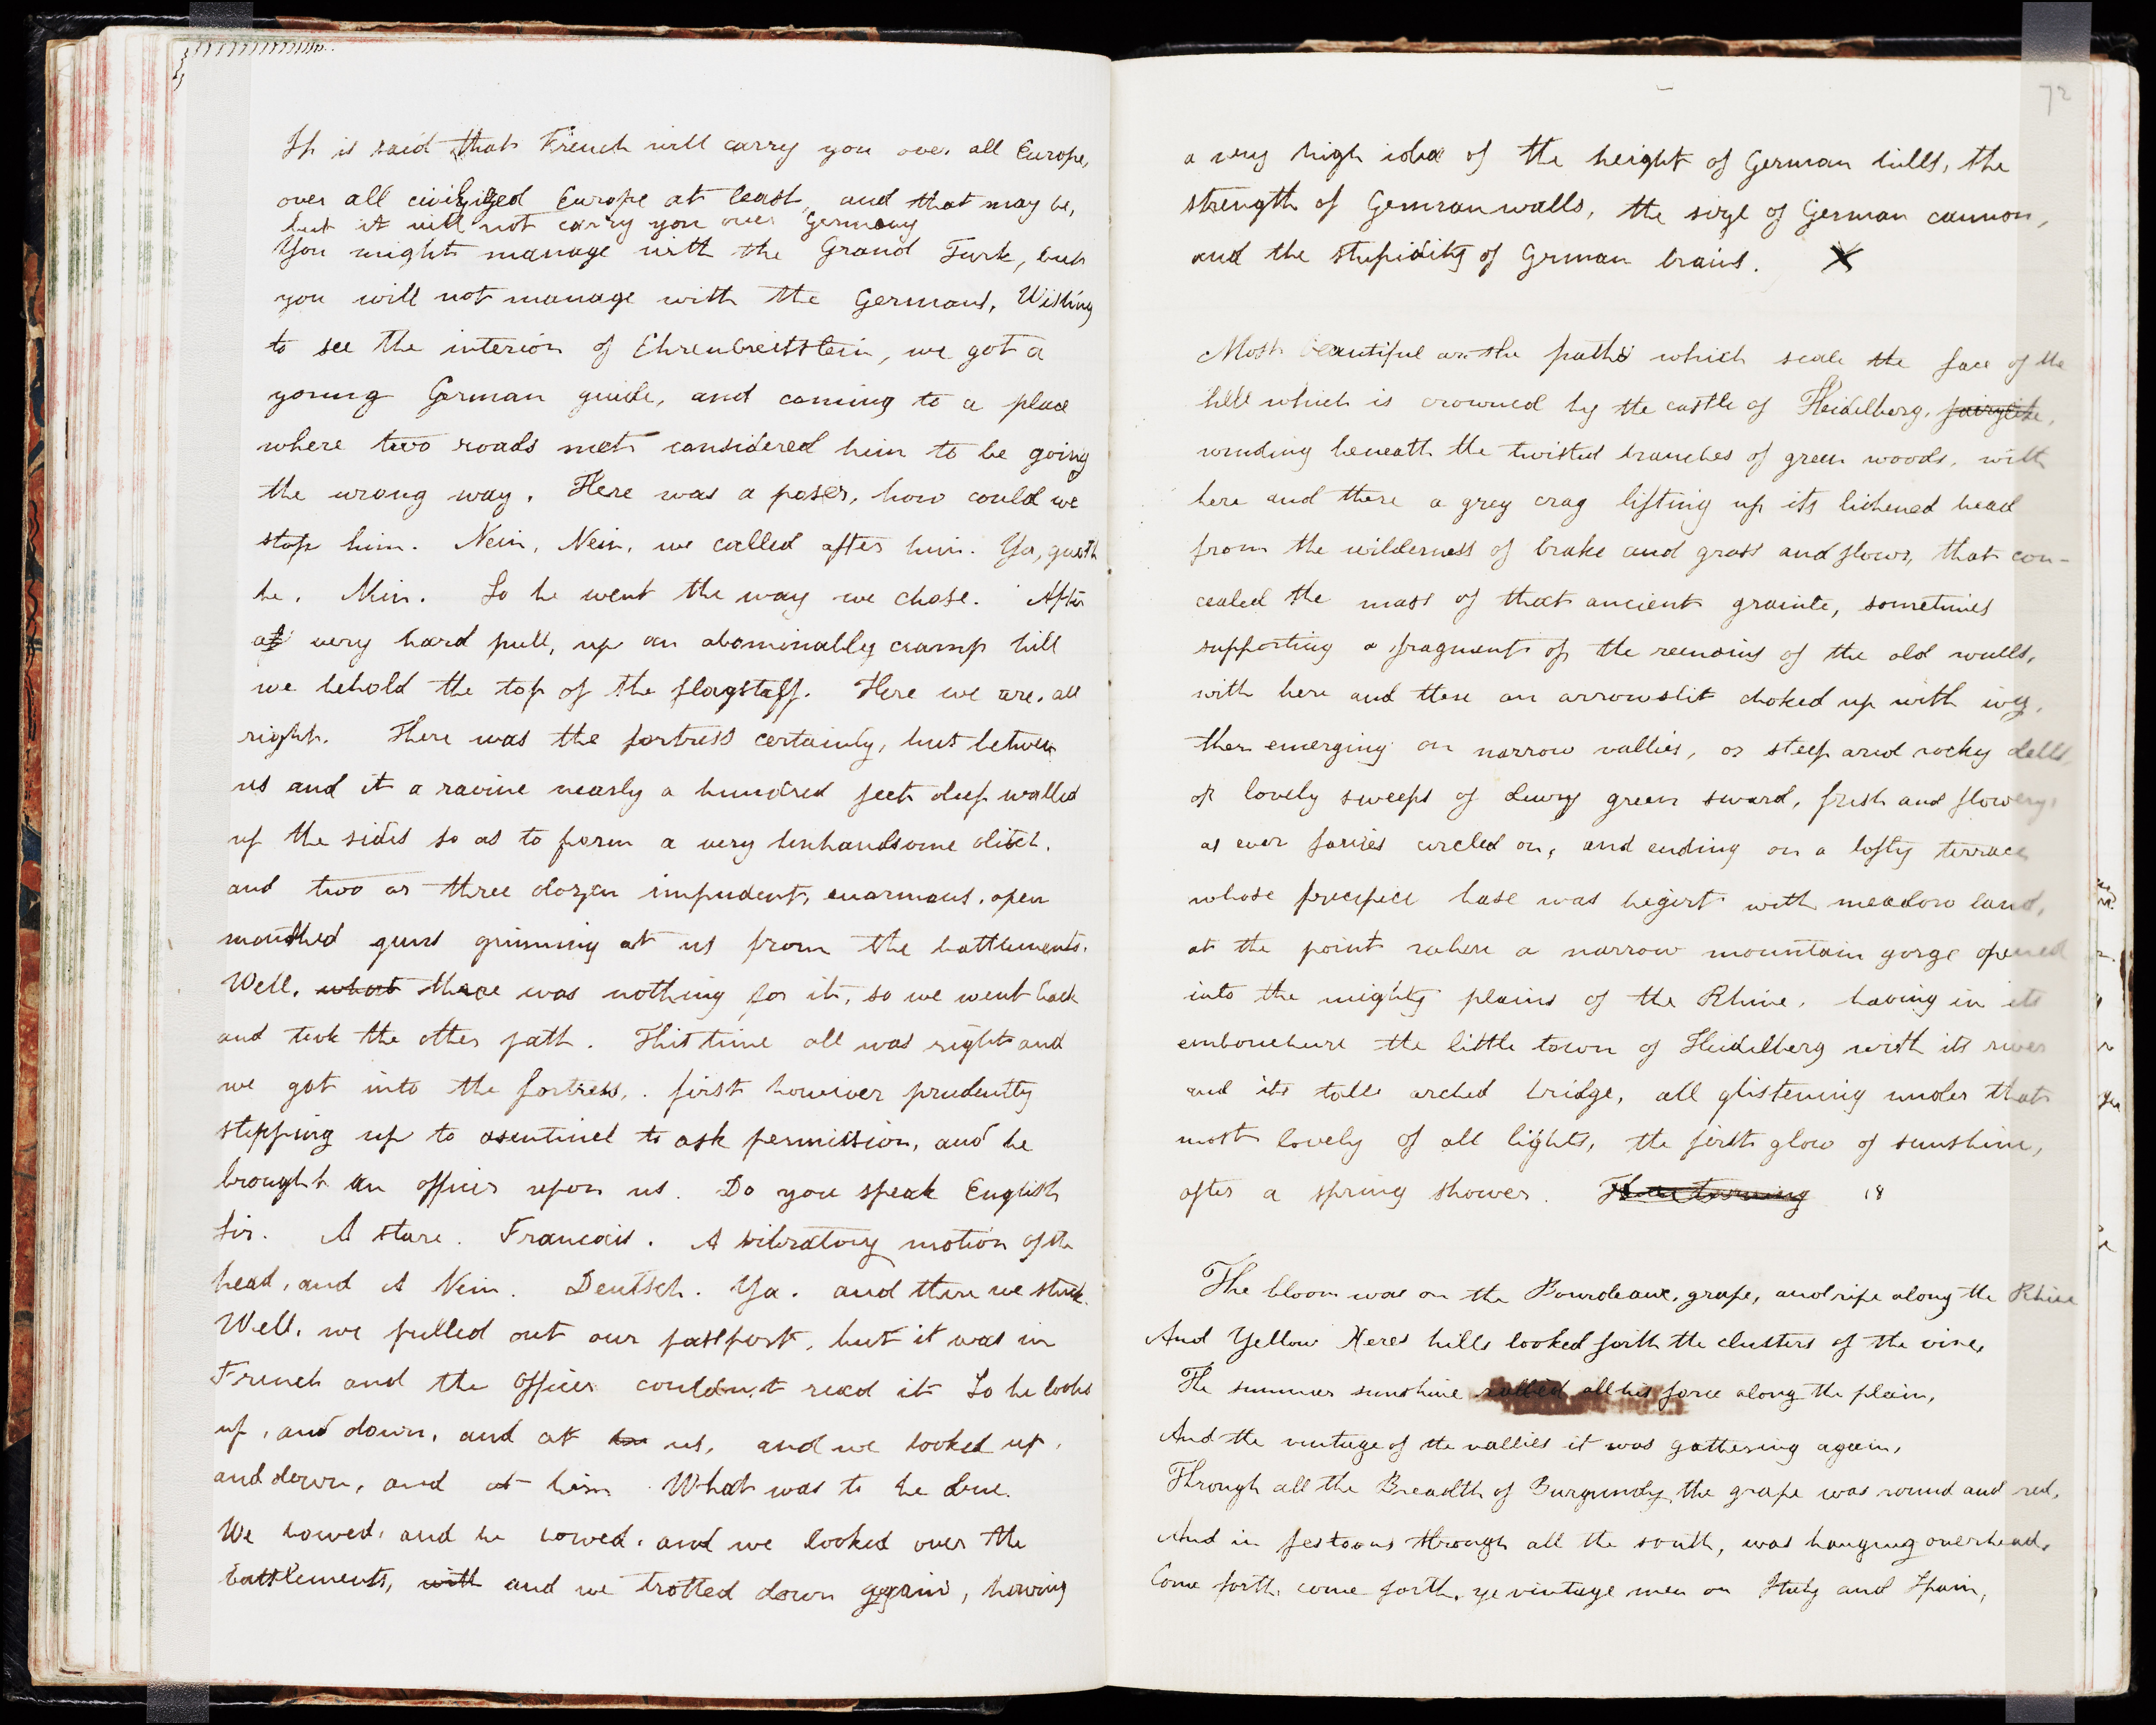 It is said that French will carry you over all Europe,
over all civilized Europe at least, and that may be,
but it will not carry you over Germany
You might manage with the Grand Turk, but
you will not manage with the Germans, Wishing
to see the interior of Ehrenbreitstein, we got a
young German guide, and coming to a place
where two roads met considered him to be going
the wrong way. Here was a poser, how could we
stop him. Nein, Nein, we called after him. Ya, quoth
he. Nein. So he went the way we chose. After
a very hard pull, up an abominably cramp hill
we behold the top of the flagstaff. Here we are, all
right. There was the fortress certainly, but between
us and it a ravine nearly a hundred feet deep walled
up the sides so as to form a very unhandsome ditch.
and two or three dozen impudent, enormous, open
mouthed guns grinning at us from the battlements.
Well, what there was nothing for it, so we went back
and took the other path. This time all was right and
we got into the fortress, . first however prudently
stepping up to a sentinel to ask permission, and he
brought an officer upon us. Do you speak English
sir. A stare. Francois. A vibratory motion of the
head, and A Nein. Deutsch. Ya. and there we stuck.
Well, we pulled out our passport, but it was in
French and the officer couldn't read it So he looks
up, and down, and at us, and we looked up,
and down, and at him What was to be done.
We bowed, and he bowed, and we looked over the
battlements, with and we trotted down again, having
72
a very high idea of the height of German hills, the
strength of German walls, the size of German cannon,
and the stupidity of German brains. X
Most beautiful are the paths which scale the face of the
hill which is crowned by the castle of Heidelberg, fairylike,
winding beneath the twisted branches of green woods, with
here and there a grey crag lifting up its lichened head
from the wilderness of brake and grass and flowrs, that con-
cealed the mass of that ancient grainte, sometimes
supporting a fragment of the remains of the old walls,
with here and there an arrowslit choked up with ivy,
then emerging on narrow vallies, or steep and rocky dells,
or lovely sweeps of dewy green sward, fresh and flowery,
as ever faries circled on, and ending on a lofty terrace
whose precipice base was begirt with meadow land,
at the point where a narrow mountain gorge opened
into the mighty plains of the Rhine, having in its
embouchure the little town of Heidelberg with its river
and its tall arched bridge, all glistening under that
most lovely of all lights, the first glow of sunshine,
after a spring shower. Then turning 18
The bloom was on the Bourdeaux, grape, and ripe along the Rhine
And Yellow Xeres hills looked forth the clusters of the vine,
The summer sunshine rallied all his force along the plain,
And the vintage of the vallies it was gathering again,
Through all the Breadth of Burgundy the grape was round and red,
And in festoons through all the south, was hanging overhead,
Come forth, come forth, ye vintage men on Italy and Spain,